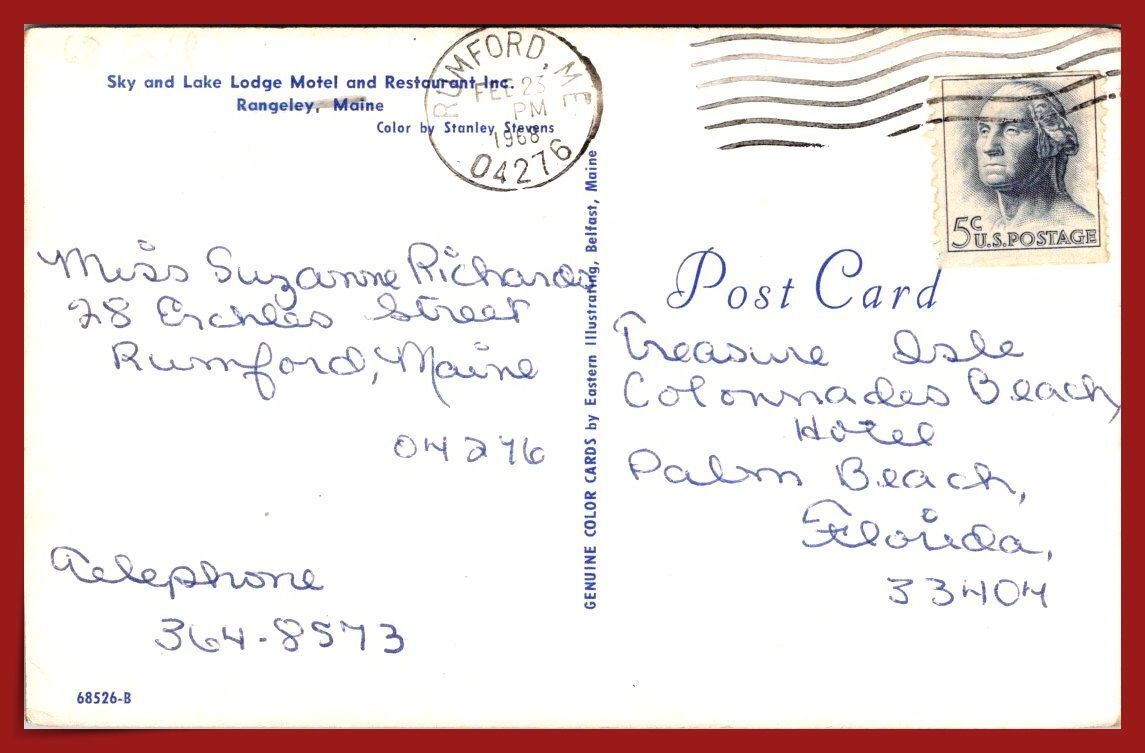 Sky and Lake Lodge Motel and Restaurant Inc.
Rangeley, Maine
Color by Stanley Stevens
RUMFORD, ME
FEB 23
PM
1968
04276
5c
U.S. POSTAGE
Miss Suzanne Richards
28 Street
Rumford, Maine
04276
Telephone
364-8573
68526-B
GENUINE COLOR CARDS by Eastern Illustrating, Belfast, Maine
Post Card
Treasure Isle
Colonnades Beach
Hotel
Palm Beach,
Florida,
33404